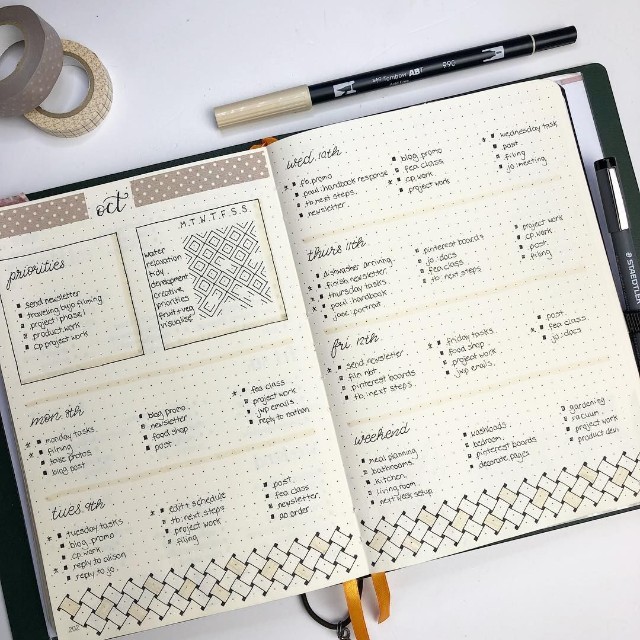 oct
priorities
send newsletter
traveling bujo filming
project phase 1
product work
cp project work
M.T.W.T.F.S.S.
water
relaxation
tidy
development
creative
priorities
fruit + veg
visualise
mon. 8th
monday tasks.
filming
take photos
blog post
blog promo
newsletter
food shop
post
fea class
project work
jwp emails.
reply to
tues. 9th
tuesday tasks
blog. promo
cp work.
reply to alison
reply to jo.
edit + schedule
tb. next. steps
project work
filing
post.
fea class
newsletter.
ao order
202
wed. 10th
fb. promo
paul: handbook response
tb: next steps.
newsletter.
blog. promo
fea class.
cp. work
project work
wednesday task
post
filing
jo: meeting
thurs. 11th
dishwasher arriving.
finish newsletter.
thursday tasks.
paul: handbook
joae: portrait
pinterest boards
jo: docs
fea class
tb: next steps
project work
cp. work
post
filing
fri. 12th
send. newsletter
film nbt.
pinterest boards
tb.: next steps
friday tasks
food shop
project work
jwp emails.
post
fea class
jo: docs
weekend
meal planning
bathrooms
kitchen
living room
next week setup
washloads
bedroom.
pinterest boards
decorate pages
gardening.
vacuum
project work
product devt
Tombow ABT
990
STAEDTLER